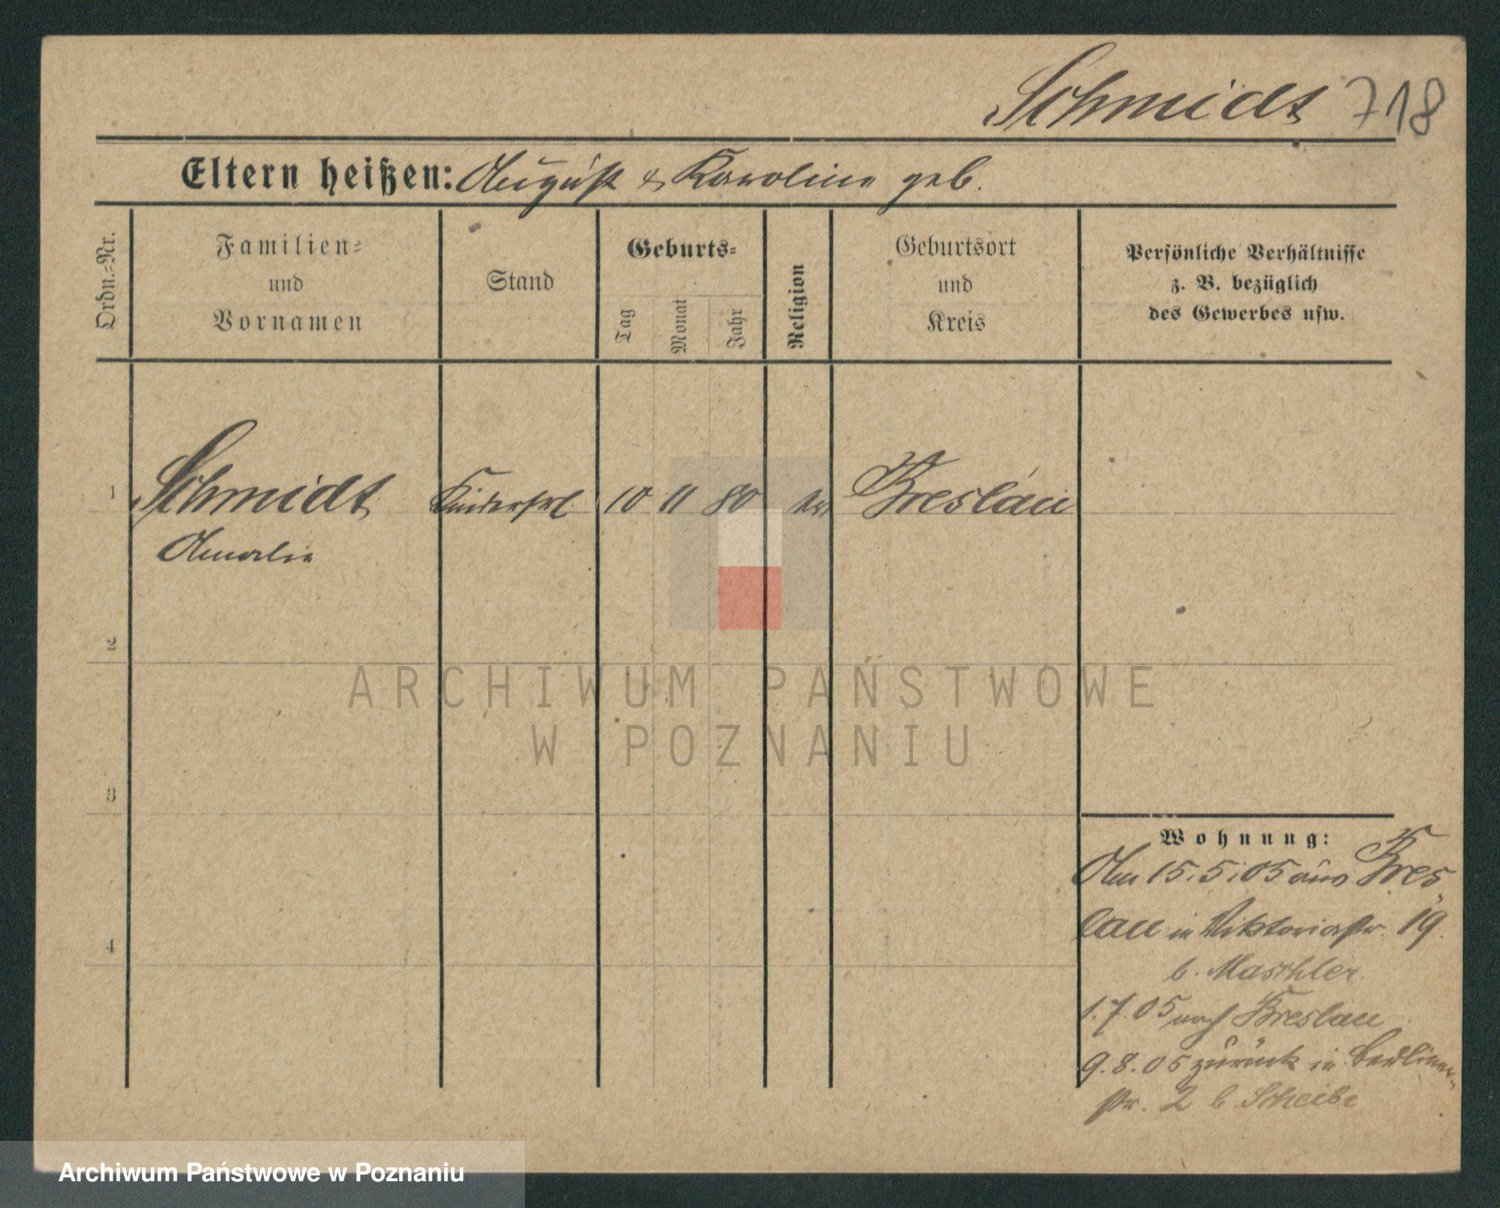 Schmidt 718
Eltern heißen: August & Karoline geb.
Ordn.-Nr.
Familien-
und
Vornamen
Stand
Geburts-
Tag
Monat
Jahr
Religion
Geburtsort
und
Kreis
Persönliche Verhältnisse
z. B. bezüglich
des Gewerbes usw.
1 Schmidt Kinderfrl. 10 11 80 ev. Breslau
Amalie
2
ARCHIWUM PAŃSTWOWE
W POZNANIU
3
Wohnung:
Am 15.5.05 aus Bres
lau in Viktoriastr. 19.
b. Maschler.
4
1.7.05 nach Breslau
9.8.05 zurück in Berliner-
str. 2 b. Scheibe
Archiwum Państwowe w Poznaniu